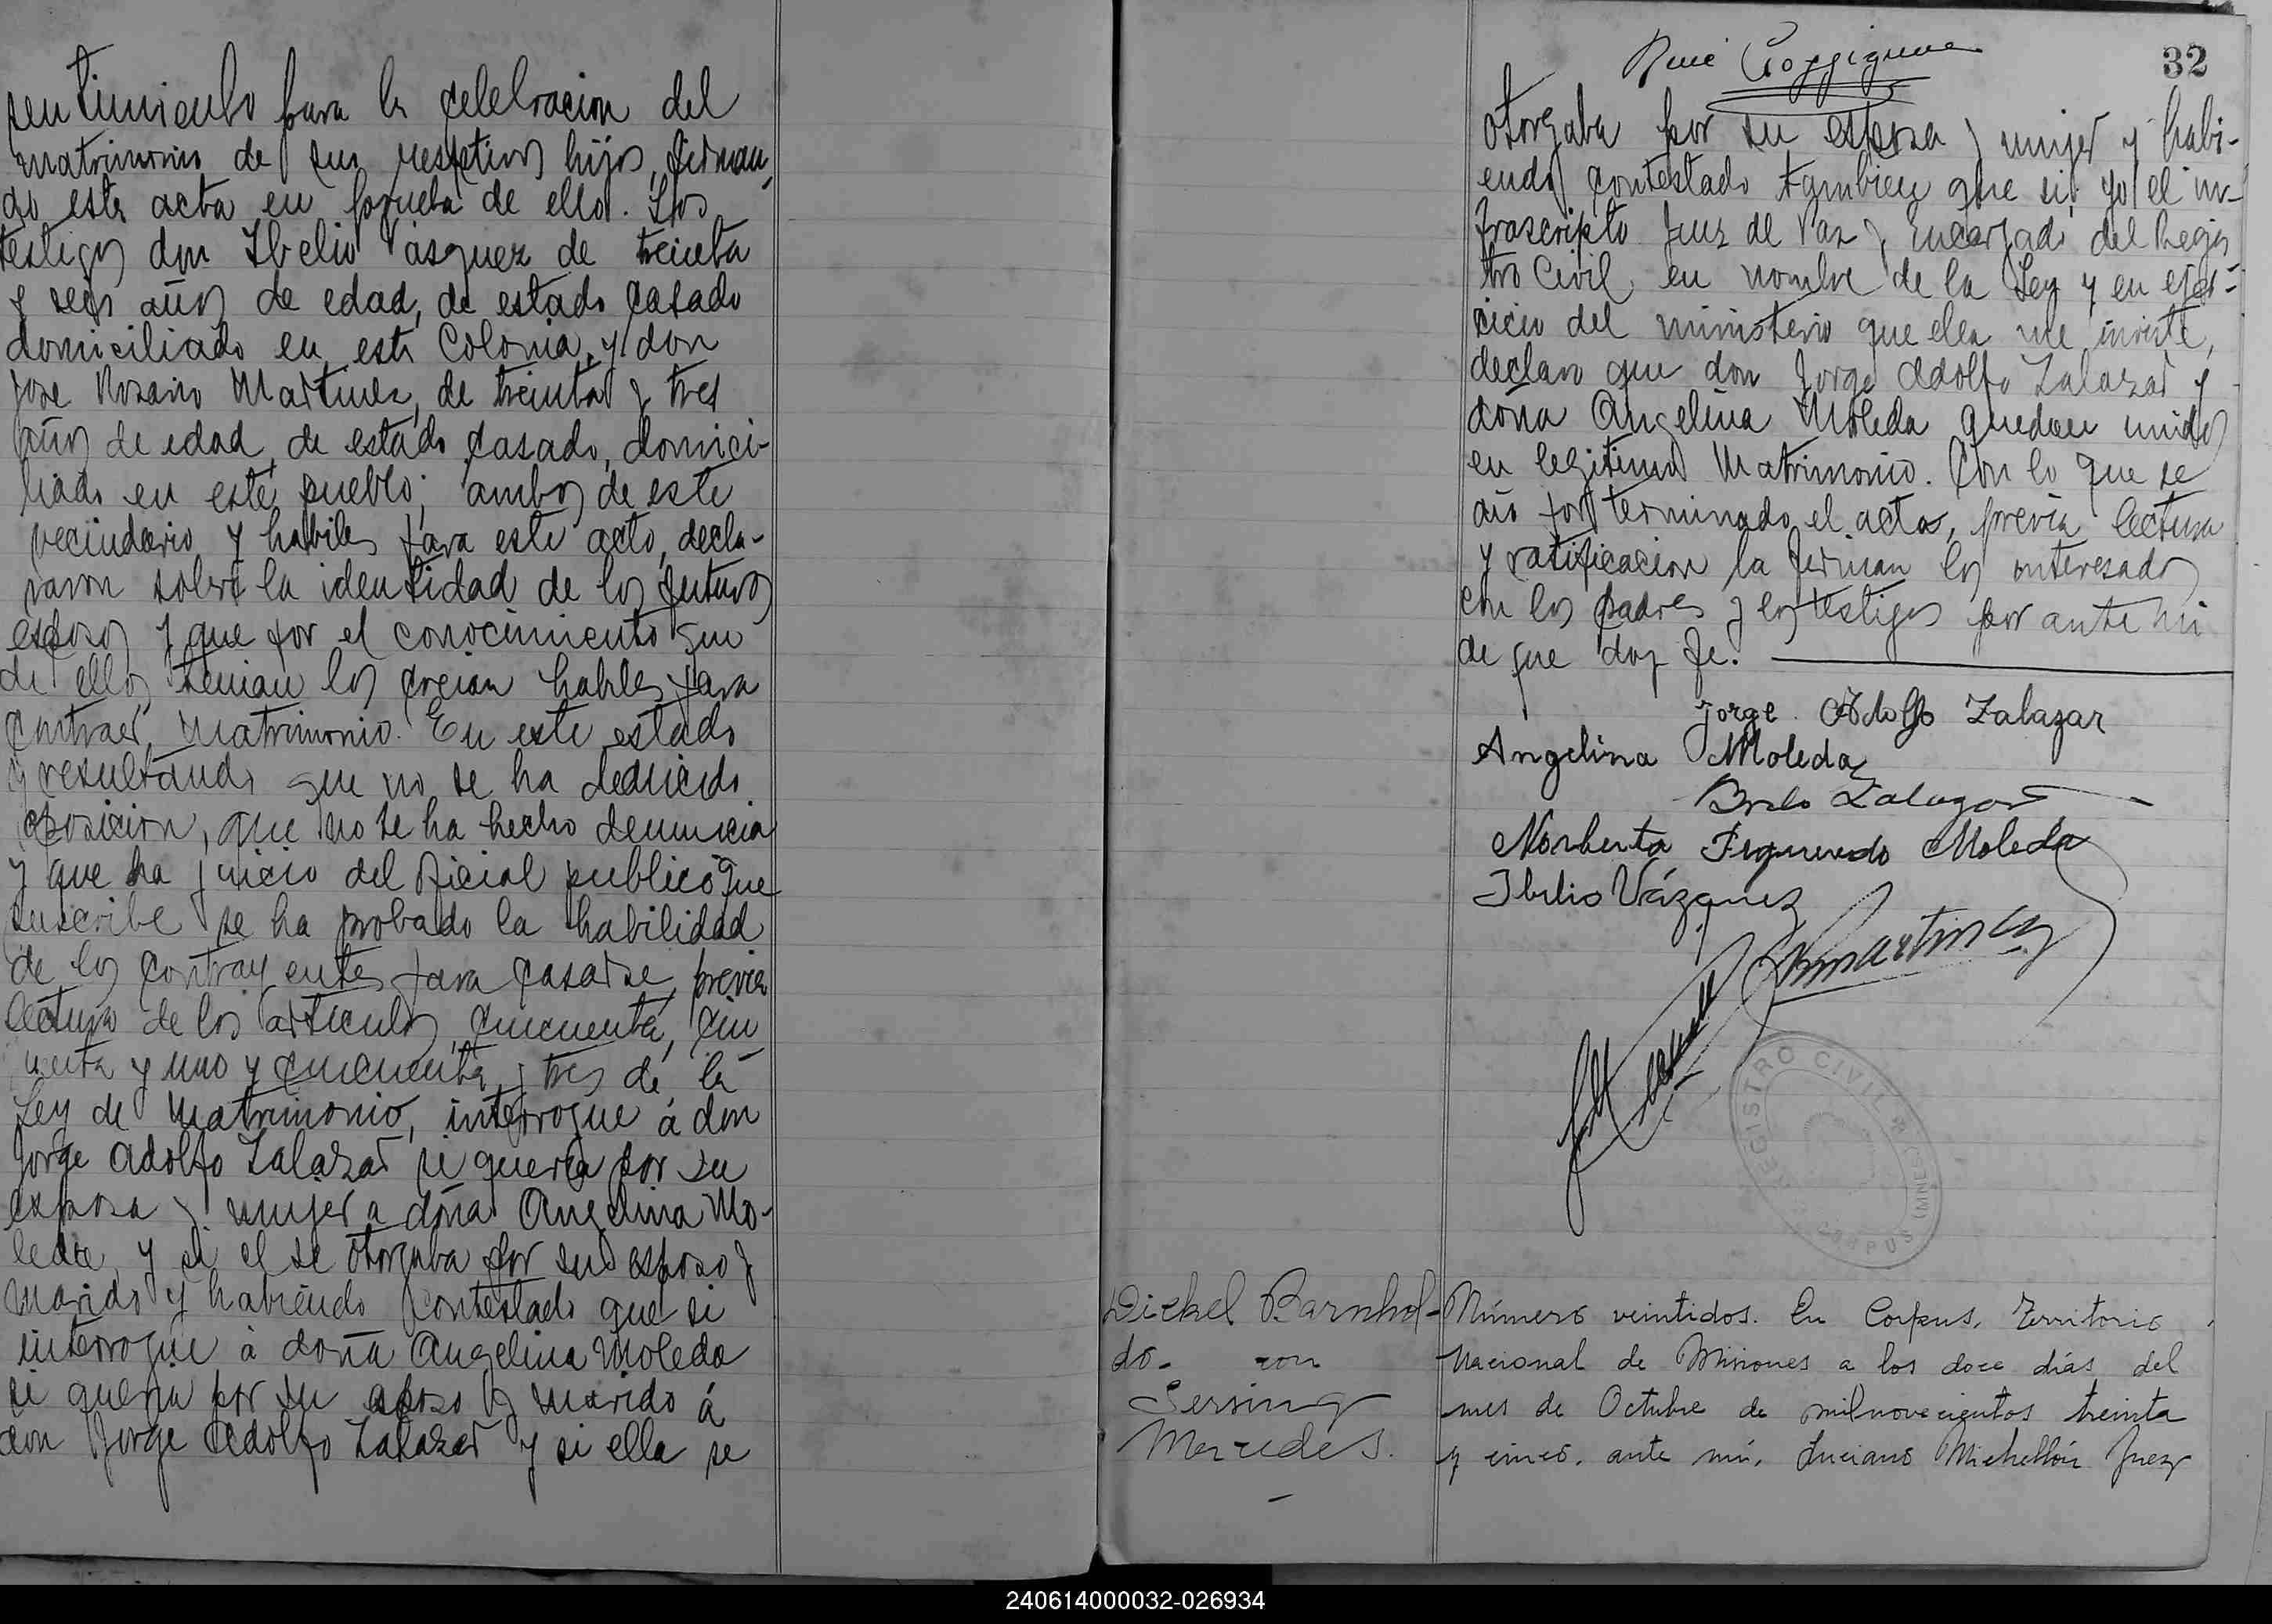 sentimiento para la celebracion del
matrimonio de sus respetivos hijos, firman-
do esta acta en prueba de ello. Los
testigos don Ibelio Vasquez de treinta
y seis años de edad, de estado casado
domiciliado en esta Colonia, y don
Jose Rosario Martinez, de treinta y tres
años de edad, de estado casado, domici-
liado en este pueblo; ambos de este
vecindario y habiles para este acto, decla-
raron sobre la identidad de los futuros
esposos y que por el conocimiento que
de ellos tenian los creian habiles para
contraer matrimonio. En este estado
y resultando que no se ha deducido
oposicion, que no se ha hecho denuncia
y que ha juicio del oficial publico que
suscribe se ha probado la habilidad
de los contrayentes para casarse, previa
lectura de los articulos, cincuenta, cin
cuenta y uno y cincuenta y tres de la
Ley de Matrimonio, interrogue á don
Jorge Adolfo Zalazar si queria por su
esposa y mujer a doña Angelina Mo-
leda, y si el se otorgaba por su esposo y
marido y habiendo contestado que si
interrogue á doña Angelina Moleda
si queria por su esposo y marido á
don Jorge Adolfo Zalazar y si ella se
32
otorgaba por su esposa y mujer y habi-
endo contestado tambien que si; yo el in-
frascripto Juez de Paz y encargado del Regis
tro Civil, en nombre de la Ley y en ejer-
cicio del ministerio que ella me inviste,
declaro que don Jorge Adolfo Zalazar y
doña Angelina Moleda quedan unidos
en legitimo Matrimonio. Con lo que se
dió por terminado el acto, previa lectura
y ratificacion la firman los interesados
con los padres y los testigos por ante mi
de que doy fe.
Jorge Adolfo Zalazar
Angelina Moleda
Zalazar
Norberta Figueredo Moleda
Ibelio Vázquez
Martinez
REGISTRO CIVIL
CORPUS (MNES)
Diekel Barnhol-
do- con
Sersing
Mercedes.
Número veintidos. En Corpus, Territorio
Nacional de Misiones a los doce días del
mes de Octubre de mil novecientos treinta
y cinco, ante mí, Luciano Michellón Juez
240614000032-026934